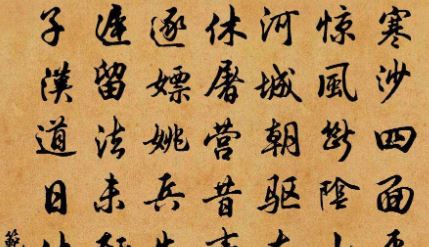 寒沙四面
惊風断陰
河城朝驱
休屠营昔
逐嫖姚兵
遲留法未
子漢道日